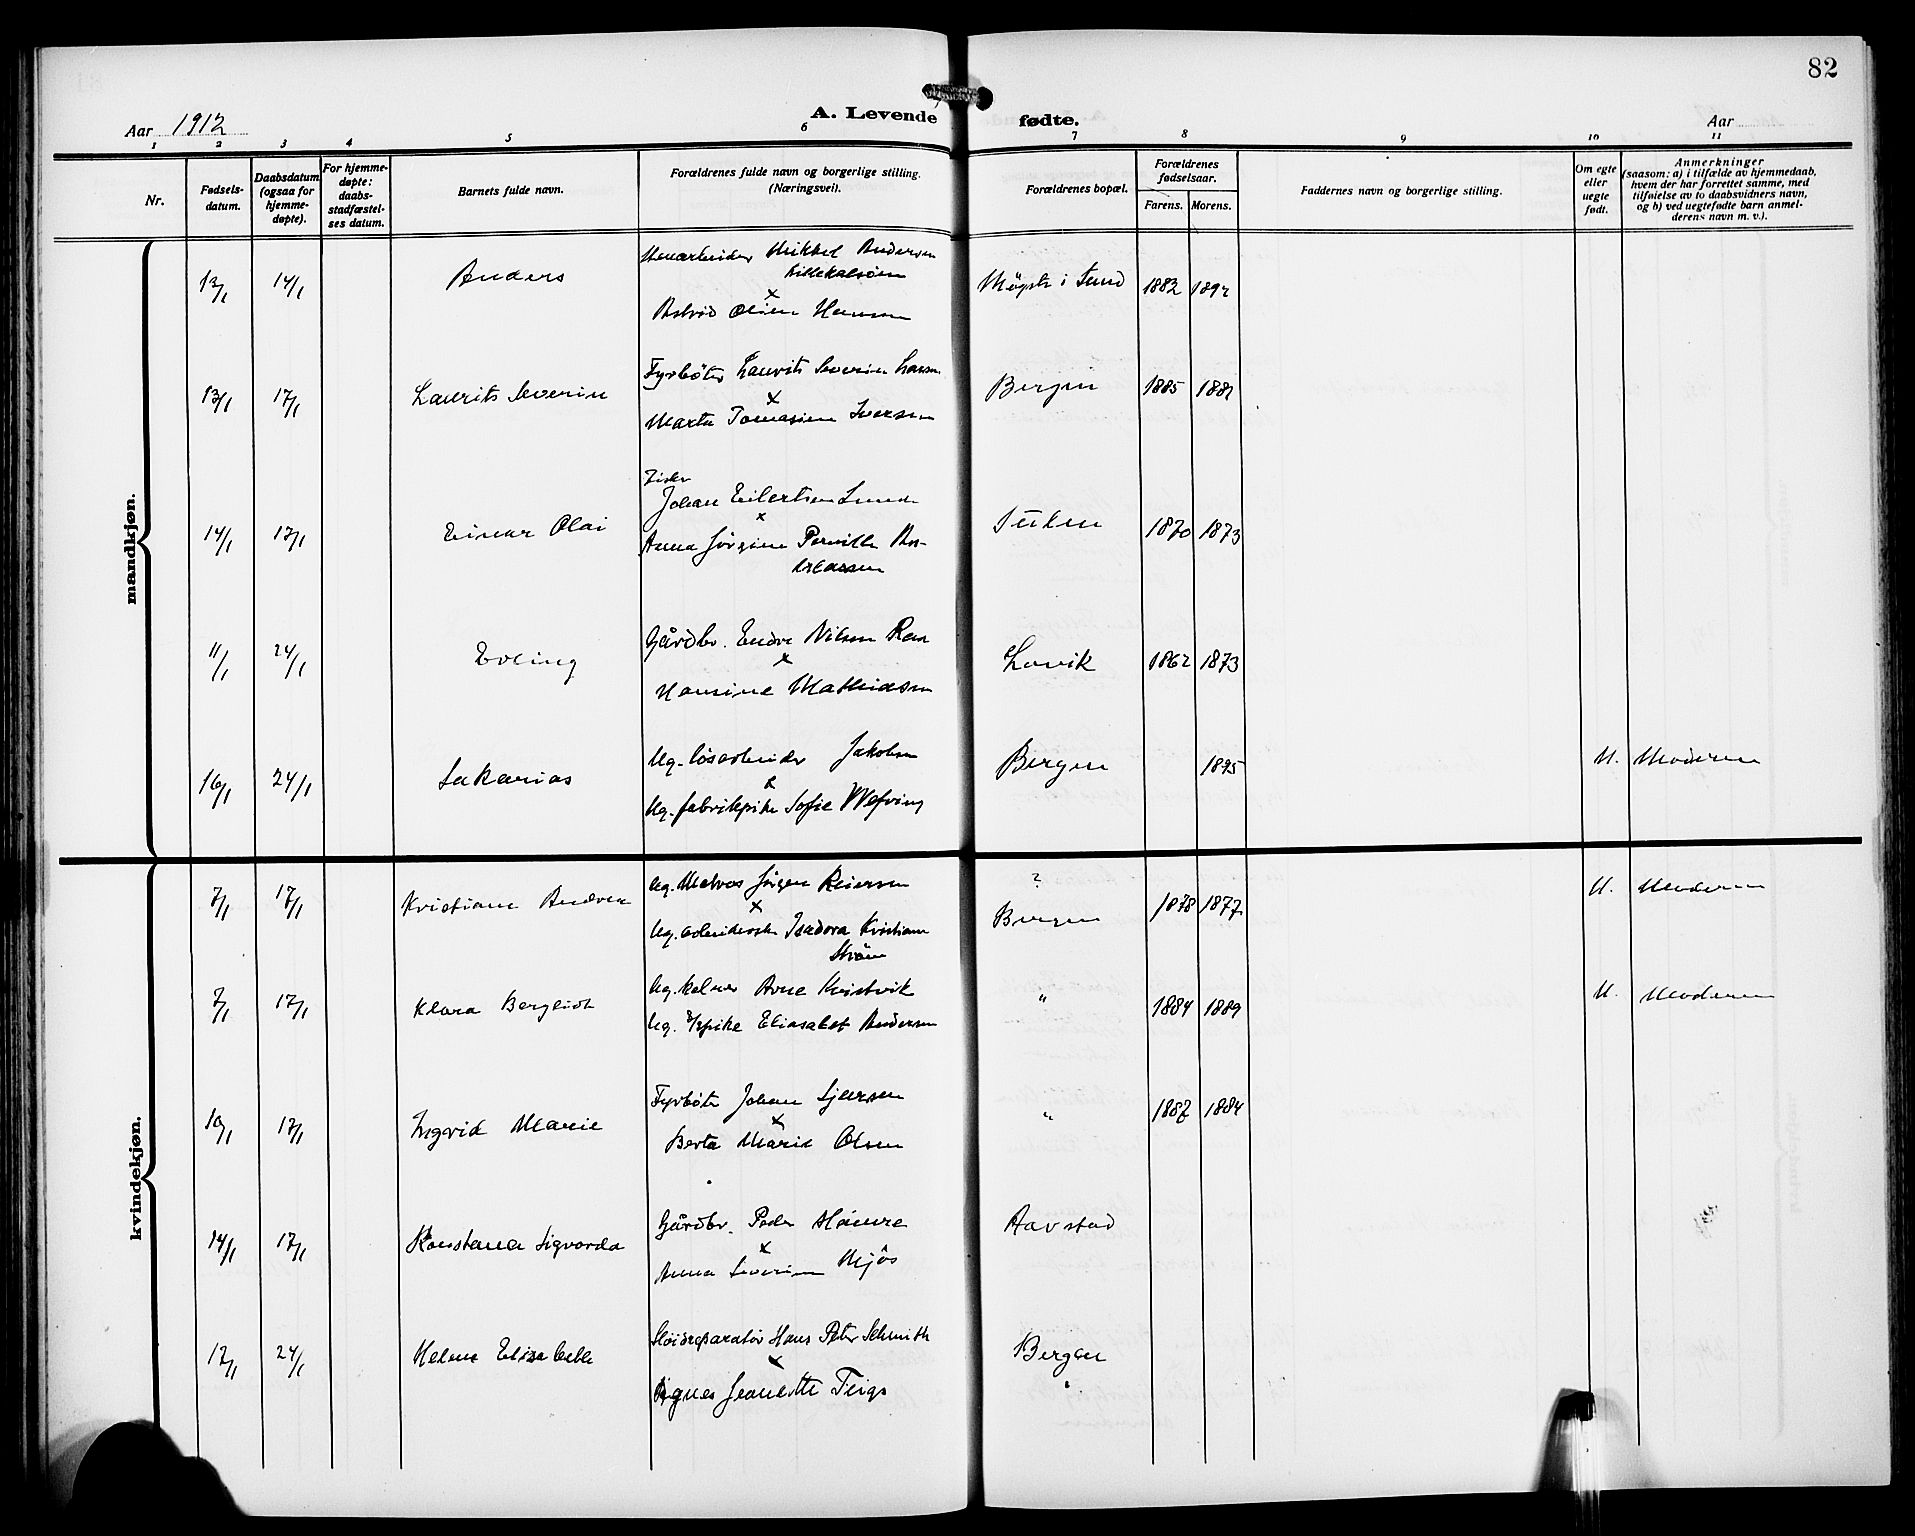 82
Aar 1912
A. Levende fødte.
Aar
1 2 3 4 5 6 7 8 9 10 11
Nr.
Fødsels-
datum.
Daabsdatum
(ogsaa for
hjemme-
døpte).
For hjemme-
døpte:
daabs-
stadfæstel-
ses datum.
Barnets fulde navn.
Forældrenes fulde navn og borgerlige stilling.
(Næringsvei).
Forældrenes bopæl.
Forældrenes
fødselsaar.
Farens. Morens.
Faddernes navn og borgerlige stilling.
Om egte
eller
uegte
født.
Anmerkninger
(saasom: a) i tilfælde av hjemmedaab,
hvem der har forrettet samme, med
tilføielse av to daabsvidners navn,
og b) ved uegtefødte barn anmel-
derens navn m. v.).
mandkjøn.
13/1 14/1 Anders Mikkel Andersen
x
Astrid Hansen
i Sund 1882
13/1 17/1 Laurits Severin Fyrbøter Laurits Severin Larsen
x
Marta Tomasine Iversen
Bergen 1885 1881
14/1 17/1 Einar Olai Fisker
Johan Eilertsen Lunde
x
Anna Jørgine Pernille An-
dreassen
1870 1873
11/1 24/1 Erling Gårdbr. Endre Nilsen
x
Hansine Mathiassen
Lovik 1862 1873
16/1 24/1 Sakarias Ug. løsarbeider Jakobsen
&
Ug. fabrikpike Sofie
Bergen 1895 U. Moderen
kvindekjøn.
7/1 17/1 Kristiane Andrea Ug. Matros Jørgen Reiersen
x
Ug. arbeiderske Isadora Kristiane
Strøm
?
Bergen 1878 1877 U. Moderen
7/1 17/1 Klara Bergliot Ug. kelner Arne Kvistvik
Ug. Elisabet Andersen
" 1884 1889 U. Moderen
10/1 17/1 Ingvid Marie Fyrbøter Johan
x
Berta Marie Olsen
" 1887 1884
14/1 17/1 Konstanse Sigvarda Gårdbr. Peder
x
Anna Severine Mjøs
Aavstad
12/1 24/1 Helene Elisabeth Hans Peter Schmith
x
Agnes Jeanette Teige
Bergen
"